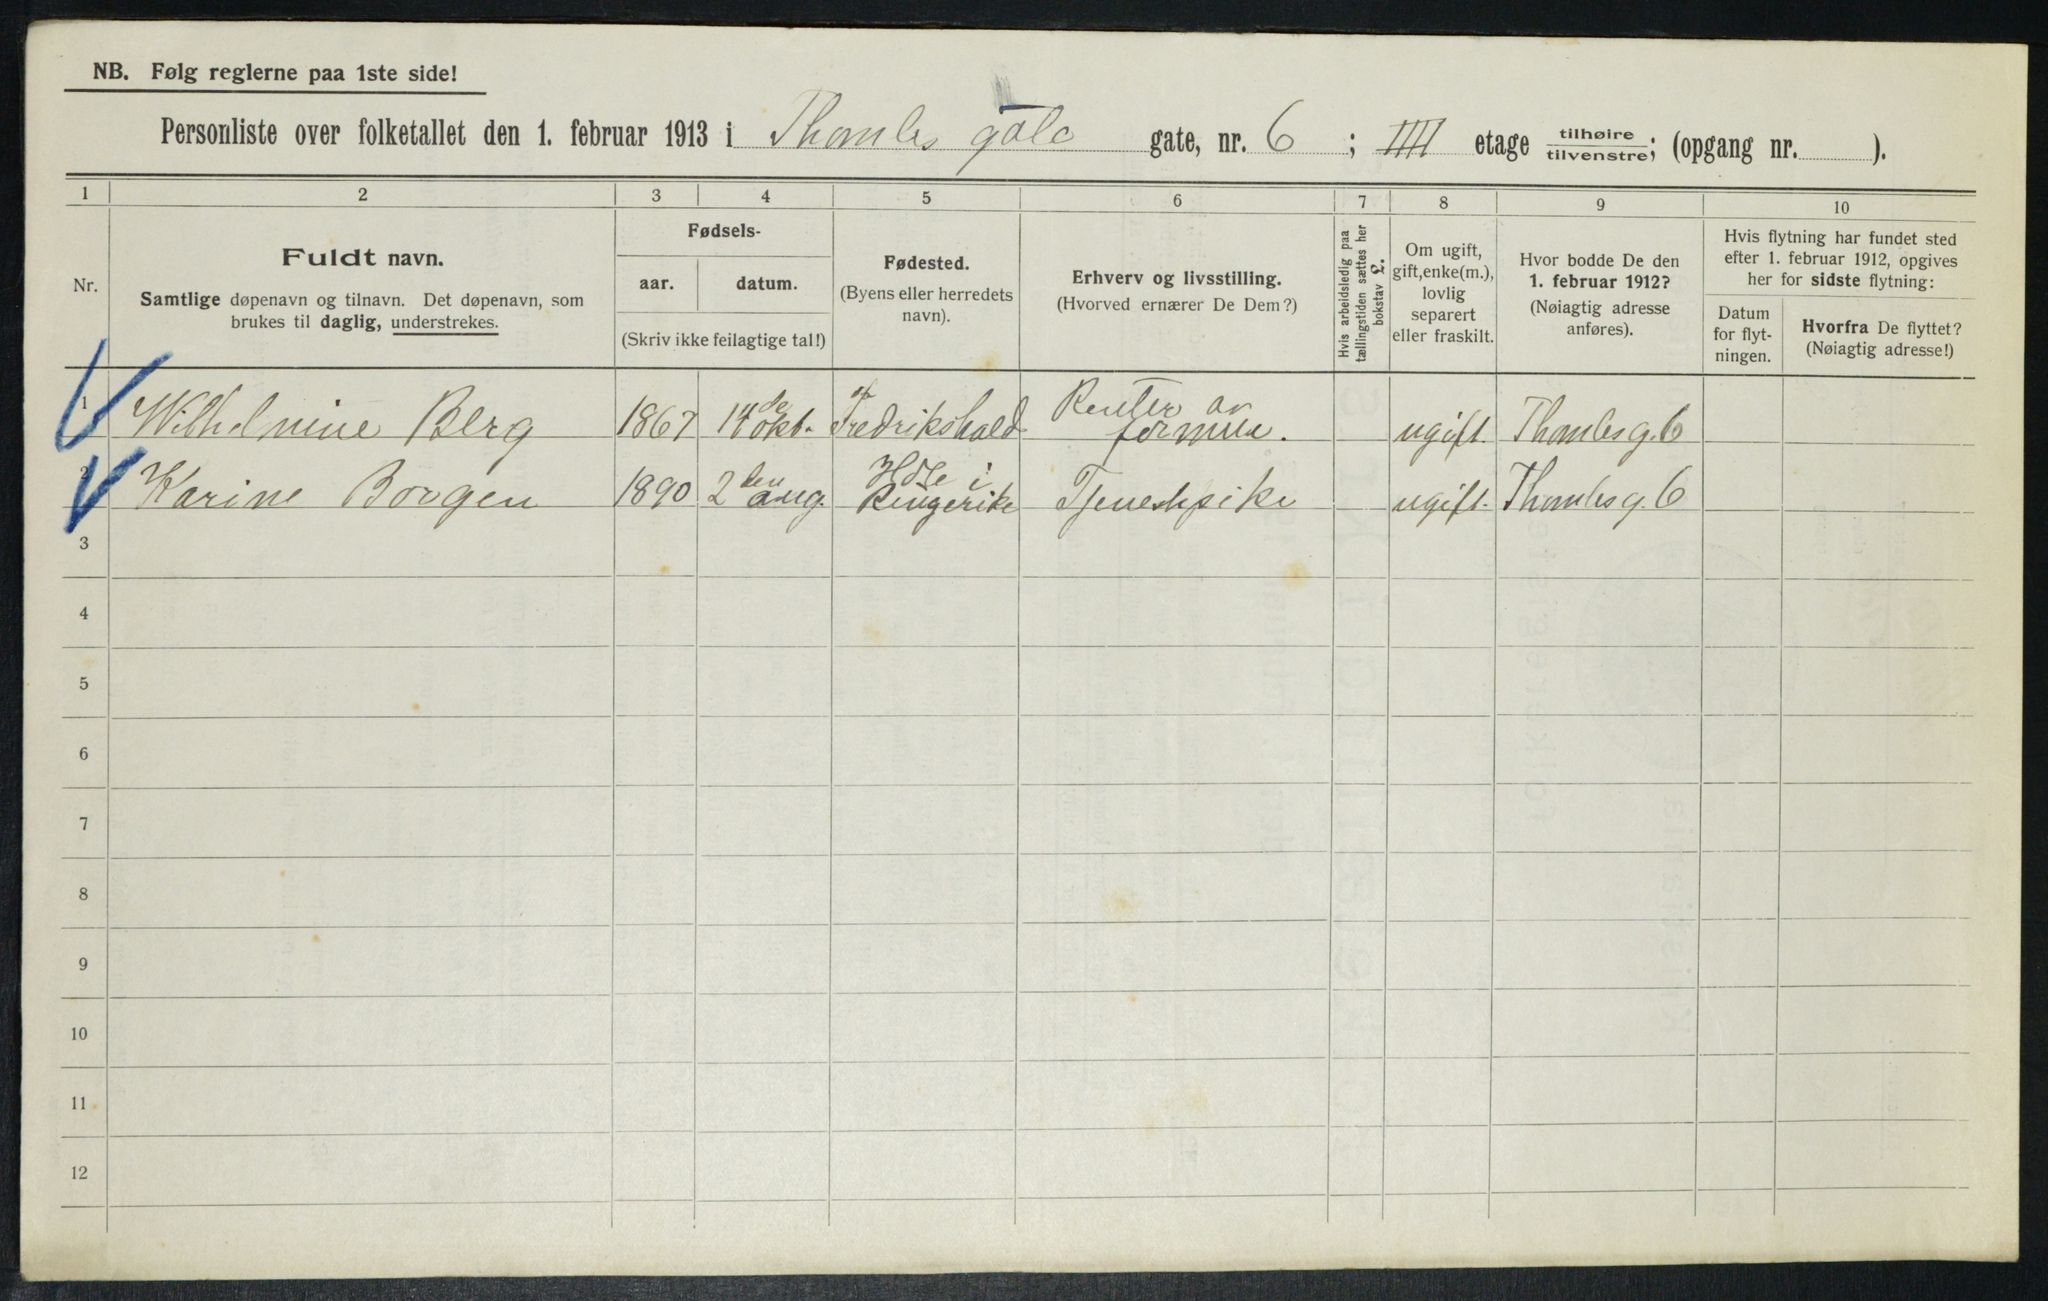 NB. Følg reglerne paa 1ste side!
Personliste over folketallet den 1. februar 1913 i Thomles gate gate, nr. 6 ; IIII etage tilhøire/tilvenstre; (opgang nr. ).
1 2 3 4 5 6 7 8 9 10
Nr.
Fuldt navn.
Samtlige døpenavn og tilnavn. Det døpenavn, som
brukes til daglig, understrekes.
Fødsels-
aar. datum.
(Skriv ikke feilagtige tal!)
Fødested.
(Byens eller herredets
navn).
Erhverv og livsstilling.
(Hvorved ernærer De Dem?)
Hvis arbeidsledig paa
tællingstiden sættes her
bokstav L.
Om ugift,
gift, enke(m.),
lovlig
separert
eller fraskilt.
Hvor bodde De den
1. februar 1912?
(Nøiagtig adresse
anføres).
Hvis flytning har fundet sted
efter 1. februar 1912, opgives
her for sidste flytning:
Datum
for flyt-
ningen.
Hvorfra De flyttet?
(Nøiagtig adresse!)
1 Wilhelmine Berg 1867 14de okt. Fredrikshald Renter av formue. ugift. Thomlesg. 6
2 Karine Borgen 1890 2den aug. Hole i Ringerike Tjenestpike ugift. Thomlesg. 6
3
4
5
6
7
8
9
10
11
12